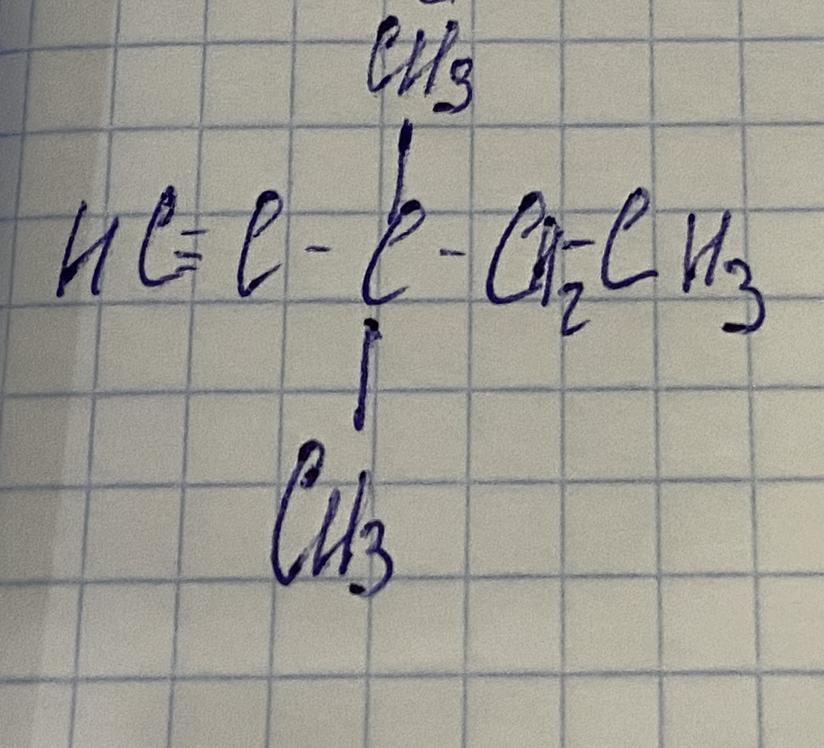 CH3
HC≡C-C-CH2-CH3
CH3